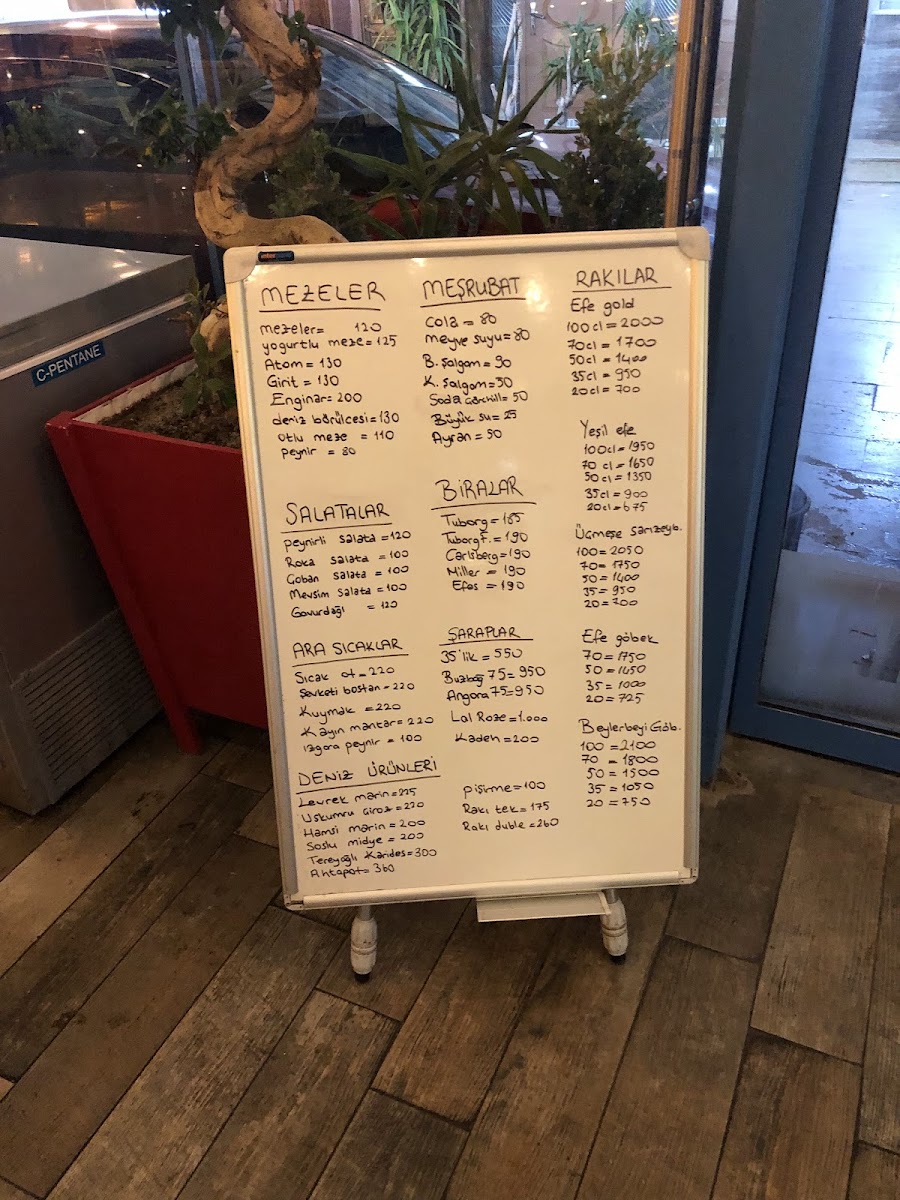 C-PENTANE
MEZELER
mezeler= 120
yogurtlu meze=125
Atom=130
Girit=130
Enginar=200
deniz börülcesi=130
otlu meze =110
peynir = 80
SALATALAR
peynirli salata=120
Roka salata=100
Çoban salata=100
Mevsim salata=100
Gavurdağı =120
ARA SICAKLAR
Sıcak ot=220
Şevketi bostan=220
Kuymak =220
Kayın mantar=220
ızgara peynir =100
DENİZ ÜRÜNLERİ
Levrek marin=225
Uskumru Giroz=220
Hamsi marin=200
Soslu midye =200
Tereyağlı Karides=300
Ahtapot=360
MEŞRUBAT
Cola = 80
meyve suyu=80
B. Şalgam = 90
K. Şalgam=50
Soda =50
Büyük su= 25
Ayran = 50
BİRALAR
Tuborg=185
Tuborg F.=190
Carlsberg=190
Miller =190
Efes =190
ŞARAPLAR
35'lik =550
Buzbağ 75=950
Angora 75=950
Lal Roze=1.000
Kadeh=200
pişirme=100
Rakı tek=175
Rakı duble=260
RAKILAR
Efe gold
100cl=2000
70cl=1700
50cl=1400
35cl=950
20cl=700
Yeşil efe
100cl=1950
70 cl=1650
50cl=1350
35cl=900
20cl=675
Üçmeşe sarızeyb.
100=2050
70=1750
50=1400
35=950
20=700
Efe göbek
70=1750
50=1450
35=1000
20=725
Beylerbeyi Göb.
100=2100
70 =1800
50=1500
35=1050
20=750